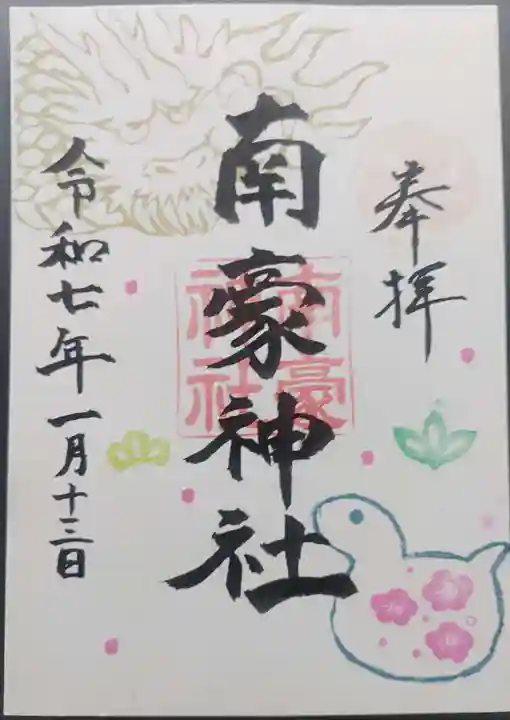 奉拝
南豪神社
南豪神社
令和七年一月十三日